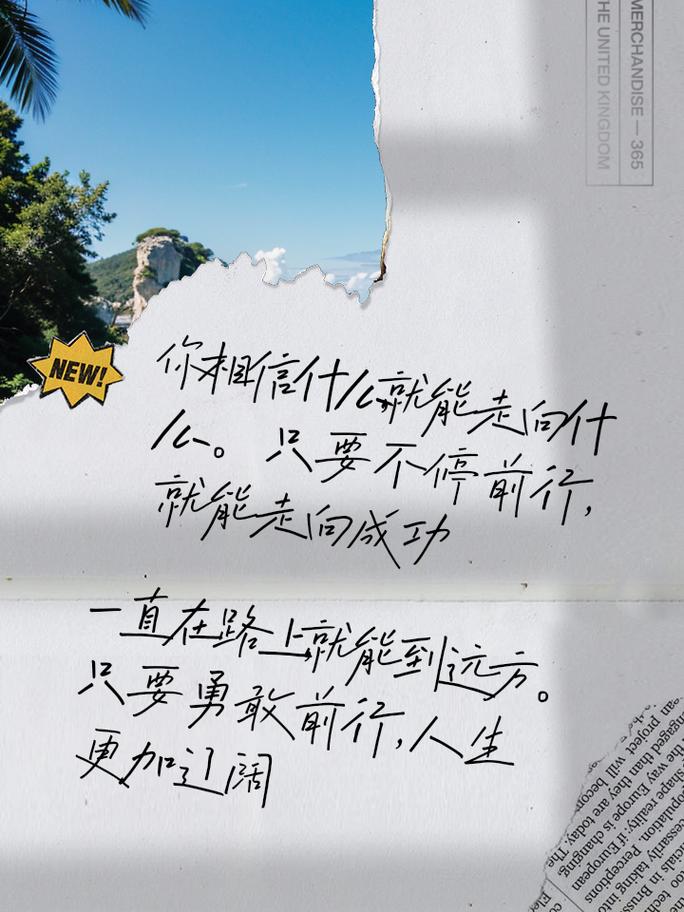 MERCHANDISE — 365
THE UNITED KINGDOM
NEW!
你相信什么就能走向什
么。只要不停前行,
就能走向成功
一直在路上就能到远方。
只要勇敢前行,人生
更加辽阔
project will becom
engaged than they are today. The
the way Europe is changing
shape reality: if European
population. Perceptions
necessarily taking into
officials in Bruss
too tech